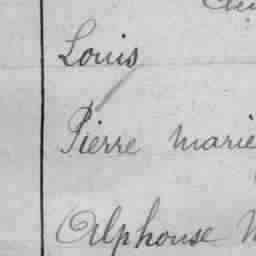 Louis
Pierre Marie
Alphonse